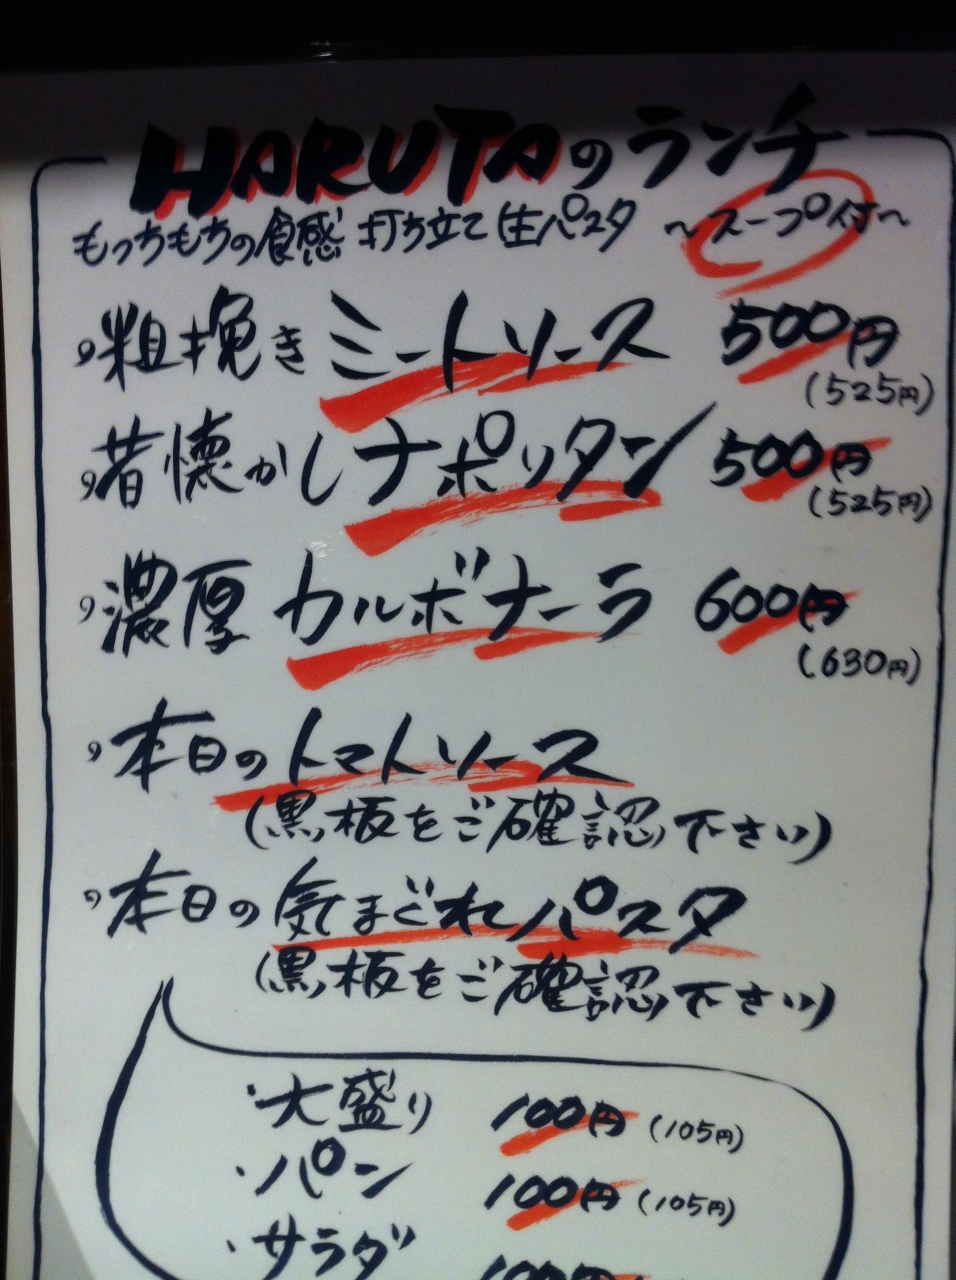 HARUTAのランチ
もっちもちの食感 打ち立て 生パスタ ～スープ付～
粗挽き ミートソース 500円
(525円)
昔懐かし ナポリタン 500円
(525円)
濃厚 カルボナーラ 600円
(630円)
本日の トマトソース
(黒板をご確認下さい)
本日の 気まぐれパスタ
(黒板をご確認下さい)
・大盛り 100円 (105円)
・パン 100円 (105円)
・サラダ 100円